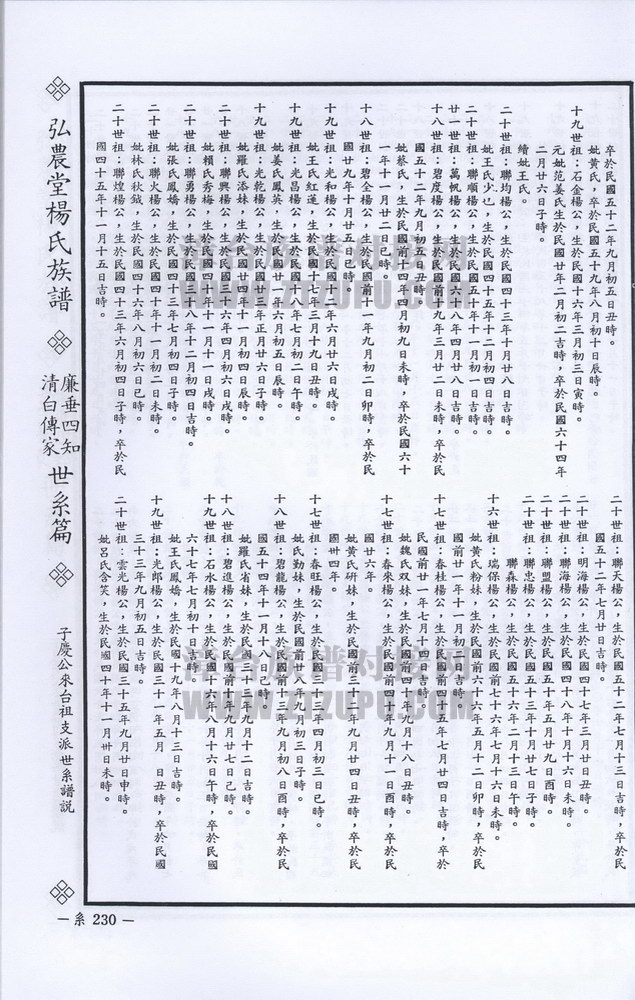 卒於民國五十二年九月初五日丑時。
妣黃氏，卒於民國五十九年八月初十日辰時。
十九世祖：石金楊公，生於民國十六年三月初三日寅時。
元妣范姜氏生於民國廿年二月初二吉時，卒於民國六十四年
二月廿六日子時。
續妣王氏。
二十世祖：聯均楊公，生於民國四十三年十月廿八日吉時。
妣王氏少，生於民國四十五年十二月初四日吉時。
二十世祖：聯順楊公，生於民國五十年十一月初一日吉時。
廿一世祖：萬帆楊公，生於民國六十八年四月廿八日吉時。
十八世祖：碧度楊公，生於民國前十九年三月廿二日未時，卒於民
國五十二年九月初五日丑時。
妣蔡氏，生於民國前十四年四月初九日未時，卒於民國六十
一年十一月廿二日已時。
十八世祖：碧全楊公，生於民國前十一年九月初二日卯時，卒於民
國廿九年十月廿五日已時。
十九世祖：光和楊公，生於民國十二年六月廿六日戌時。
妣王氏紅蓮，生於民國十七年三月十九日丑時。
十九世祖：光昌楊公，生於民國十八年七月初二日午時。
妣姜氏鳳英，生於民國廿二年六月初五日辰時。
十九世祖：光乾楊公，生於民國廿三年正月廿六日子時。
妣羅氏添妹，生於民國廿四年十一月初四日辰時。
二十世祖：聯興楊公，生於民國三十六年四月初六日戌時。
妣賴氏秀梅，生於民國四十年十一月十一日戌時。
二十世祖：聯勇楊公，生於民國三十八年十二月初四日吉時。
妣張氏鳳嬌，生於民國四十三年七月初四日子時。
二十世祖：聯火楊公，生於民國四十年十一月初二日未時。
妣林氏秋鉞，生於民國四十六年八月初六日已時。
二十世祖：聯煌楊公，生於民國四十三年六月初四日子時，卒於民
國四十五年十一月十五日吉時。
二十世祖：聯天楊公，生於民國五十一年十二月十三日吉時，卒於民
國五十二年七月廿日吉時。
二十世祖：明海楊公，生於民國四十七年三月廿日丑時。
二十世祖：聯海楊公，生於民國四十八年十月十六日未時。
二十世祖：聯盟楊公，生於民國五十一年廿九日酉時。
二十世祖：聯忠楊公，生於民國五十三年十月廿七日子時。
聯森楊公，生於民國五十六年二月十三日午時。
十六世祖：瑞保楊公，生於民國前七十六年七月十六日未時。
妣黃氏粉妹，生於民國前六十六年五月十二日卯時，卒於民
國前廿一年十一月初二日吉時。
十七世祖：春桂楊公，生於民國前四十五年七月廿四日吉時，卒於
民國前廿一年七月十四日吉時。
妣魏氏双妹，生於民國前四十年九月十八日丑時。
十七世祖：春來楊公，生於民國前四十年九月十一日酉時，卒於民
國廿六年。
妣黃氏研妹，生於民國前三十二年九月廿四日丑時，卒於民
國卅四年。
十七世祖：春旺楊公，生於民國三十三年四月初三日已時。
妣氏勤妹，生於民國前廿八年九月初三日子時。
十八世祖：碧龍楊公，生於民國前十三年九月初八日酉時，卒於民
國五十四年十一月十八日已時。
妣羅氏省妹，生於民國三十三年九月十二日吉時。
十八世祖：碧進楊公，生於民國前十年九月廿七日已時。
十九世祖：石水楊公，生於民國十六年八月十六日午時，卒於民國
六十七年七月初十日吉時。
妣王氏鳳嬌，生於民國十九年八月十三日吉時。
十九世祖：光郎楊公，生於民國三十一年五月 日丑時，卒於民國
三十三年九月初五日吉時。
二十世祖：雲光楊公，生於民國三十五年九月廿日申時。
妣呂氏含笑，生於民國四十年十一月卅日未時。
弘農堂楊氏族譜
廉垂四知
清白傳家
世系篇
子慶公來台祖支派世系譜說
－系 230－